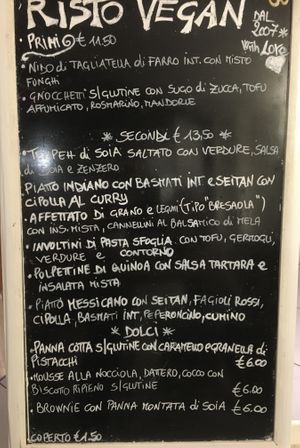 RISTO VEGAN
DAL
2007
With
Love
PRIMI € 11.50
• NIDO di TAGLIATELLA di FARRO INT. CON MISTO
FUNGHI
• GNOCCHETTI S/GLUTINE CON SUGO di ZUCCA, TOFU
AFFUMICATO, ROSMARINO, MANDORLE
* SECONDI € 13,50 *
• TEMPEH di SOIA SALTATO CON VERDURE, SALSA
di SOIA E ZENZERO
PIATTO INDIANO CON BASMATI INT E SEITAN CON
CIPOLLA AL CURRY
• AFFETTATO DI GRANO E LEGUMI (TIPO "BRESAOLA")
CON INS. MISTA, CANNELLINI AL BALSAMICO di MELA
• INVOLTINI DI PASTA SFOGLIA CON TOFU, GERMOGLI,
VERDURE E CONTORNO
• POLPETTINE DI QUINOA CON SALSA TARTARA E
INSALATA MISTA
• PIATTO MESSICANO CON SEITAN, FAGIOLI ROSSI,
CIPOLLA, BASMATI INT, PEPERONCINO, CUMINO
* DOLCI *
• PANNA COTTA S/GLUTINE CON CARAMELLO E GRANELLA di
PISTACCHI €6.00
• MOUSSE ALLA NOCCIOLA, DATTERO, COCCO CON
BISCOTTO RIPIENO S/GLUTINE €6.00
• BROWNIE CON PANNA MONTATA di SOIA €6.00
COPERTO €1.50